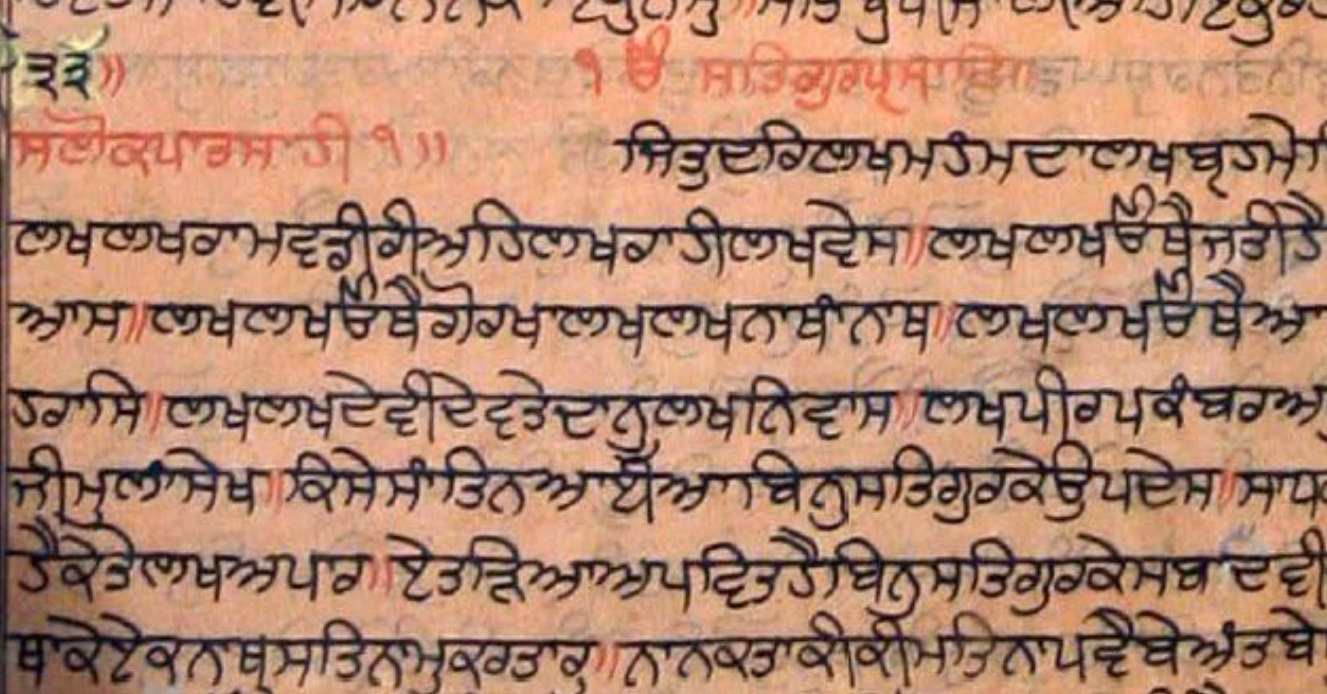 ੩੩॥ ੧ ੳ ਸਤਿਗੁਰਪ੍ਰਸਾਦਿ॥
ਸਲੋਕਪਾਤਸਾਹੀ ੧॥ ਜਿਤੁਦਰਿਲਖਮਹੰਮਦਾਲਖਬ੍ਰਹਮੇ
ਲਖਲਖਰਾਮਵਡੀਰੀਅਹਿਲਖਰਾਹੀਲਖਵੇਸ॥ਲਖਲਖਓਥੈਜਤੀਹੈ
ਆਸ॥ਲਖਲਖਓਥੈਗੋਰਖਾਲਖਲਖਨਾਥਾਂਨਾਥ॥ਲਖਲਖਓਥੈਆ
ਹਰਾਸਿ॥ਲਖਲਖਦੇਵੀਦੇਵਤੇਦਾਨੁਲਖਨਿਵਾਸ॥ਲਖਪੀਰਪਕੰਬਰਅ
ਜੀਮੁਲਾਂਸੇਖ॥ਕਿਸੇਸਾਂਤਿਨਆਈਆਬਿਨੁਸਤਿਗੁਰਕੇਉਪਦੇਸ॥ਸਾਧ
ਹੈਕੇਤੇਲਖਅਪਾਰ॥ਏਤੜਿਆਅਪਵਿਤਹੈਬਿਨੁਸਤਿਗੁਰਕੇਸਬਦਵੀ
ਥਾਕੇਏਕਨਾਥੁਸਤਿਨਾਮੁਕਰਤਾਰੁ॥ਨਾਨਕਤਾਕੀਕੀਮਤਿਨਾਪਵੈਬੇਅੰਤਬੇ